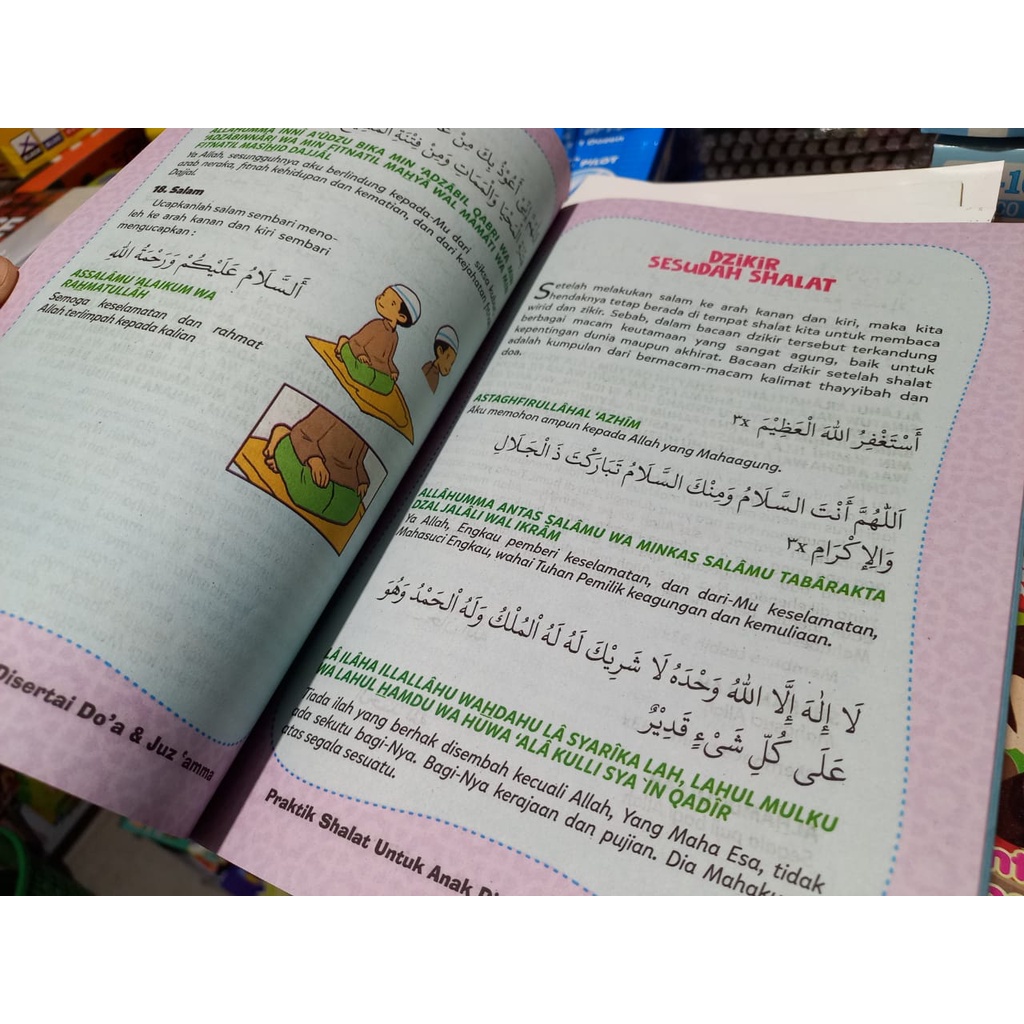 ALLÂHUMMA INNÎ A'ÛDZU BIKA MIN 'ADZÂBIL QABRI WA MIN
'ADZÂBINNÂRI WA MIN FITNATIL MAHYÂ WAL MAMÂTI WA MIN
FITNATIL MASÎHID DAJJÂL
Ya Allah, sesungguhnya aku berlindung kepada-Mu dari siksa kubur,
azab neraka, fitnah kehidupan dan kematian, dan dari kejahatan
Dajjal.
18. Salam
Ucapkanlah salam sembari meno-
leh ke arah kanan dan kiri sembari
mengucapkan :
أَلسَّلَامُ عَلَيْكُمْ وَرَحْمَةُ اللهِ
ASSALÂMU 'ALAIKUM WA
RAHMATULLÂH
Semoga keselamatan dan rahmat
Allah terlimpah kepada kalian
Disertai Do'a & Juz 'amma
DZIKIR
SESUDAH SHALAT
Setelah melakukan salam ke arah kanan dan kiri, maka kita
hendaknya tetap berada di tempat shalat kita untuk membaca
wirid dan zikir. Sebab, dalam bacaan dzikir tersebut terkandung
berbagai macam keutamaan yang sangat agung, baik untuk
kepentingan dunia maupun akhirat. Bacaan dzikir setelah shalat
adalah kumpulan dari bermacam-macam kalimat thayyibah dan
doa.
أَسْتَغْفِرُ اللهَ الْعَظِيْمَ ٣x
ASTAGHFIRULLÂHAL 'AZHÎM
Aku memohon ampun kepada Allah yang Mahaagung.
اَللّٰهُمَّ أَنْتَ السَّلَامُ وَمِنْكَ السَّلَامُ تَبَارَكْتَ ذَ الْجَلَالِ
وَالْإِكْرَامِ ٣x
ALLÂHUMMA ANTAS SALÂMU WA MINKAS SALÂMU TABÂRAKTA
DZAL JALÂLI WAL IKRÂM
Ya Allah, Engkau pemberi keselamatan, dan dari-Mu keselamatan,
Mahasuci Engkau, wahai Tuhan Pemilik keagungan dan kemuliaan.
لَا إِلٰهَ إِلَّا اللهُ وَحْدَهُ لَا شَرِيْكَ لَهُ لَهُ الْمُلْكُ وَلَهُ الْحَمْدُ وَهُوَ
عَلَى كُلِّ شَىْءٍ قَدِيْرٌ
LÂ ILÂHA ILLALLÂHU WAHDAHU LÂ SYARÎKA LAH, LAHUL MULKU
WA LAHUL HAMDU WA HUWA 'ALÂ KULLI SYA`IN QADÎR
Tiada ilah yang berhak disembah kecuali Allah, Yang Maha Esa, tidak
ada sekutu bagi-Nya. Bagi-Nya kerajaan dan pujian. Dia Mahaku
atas segala sesuatu.
Praktik Shalat Untuk Anak
PILOT